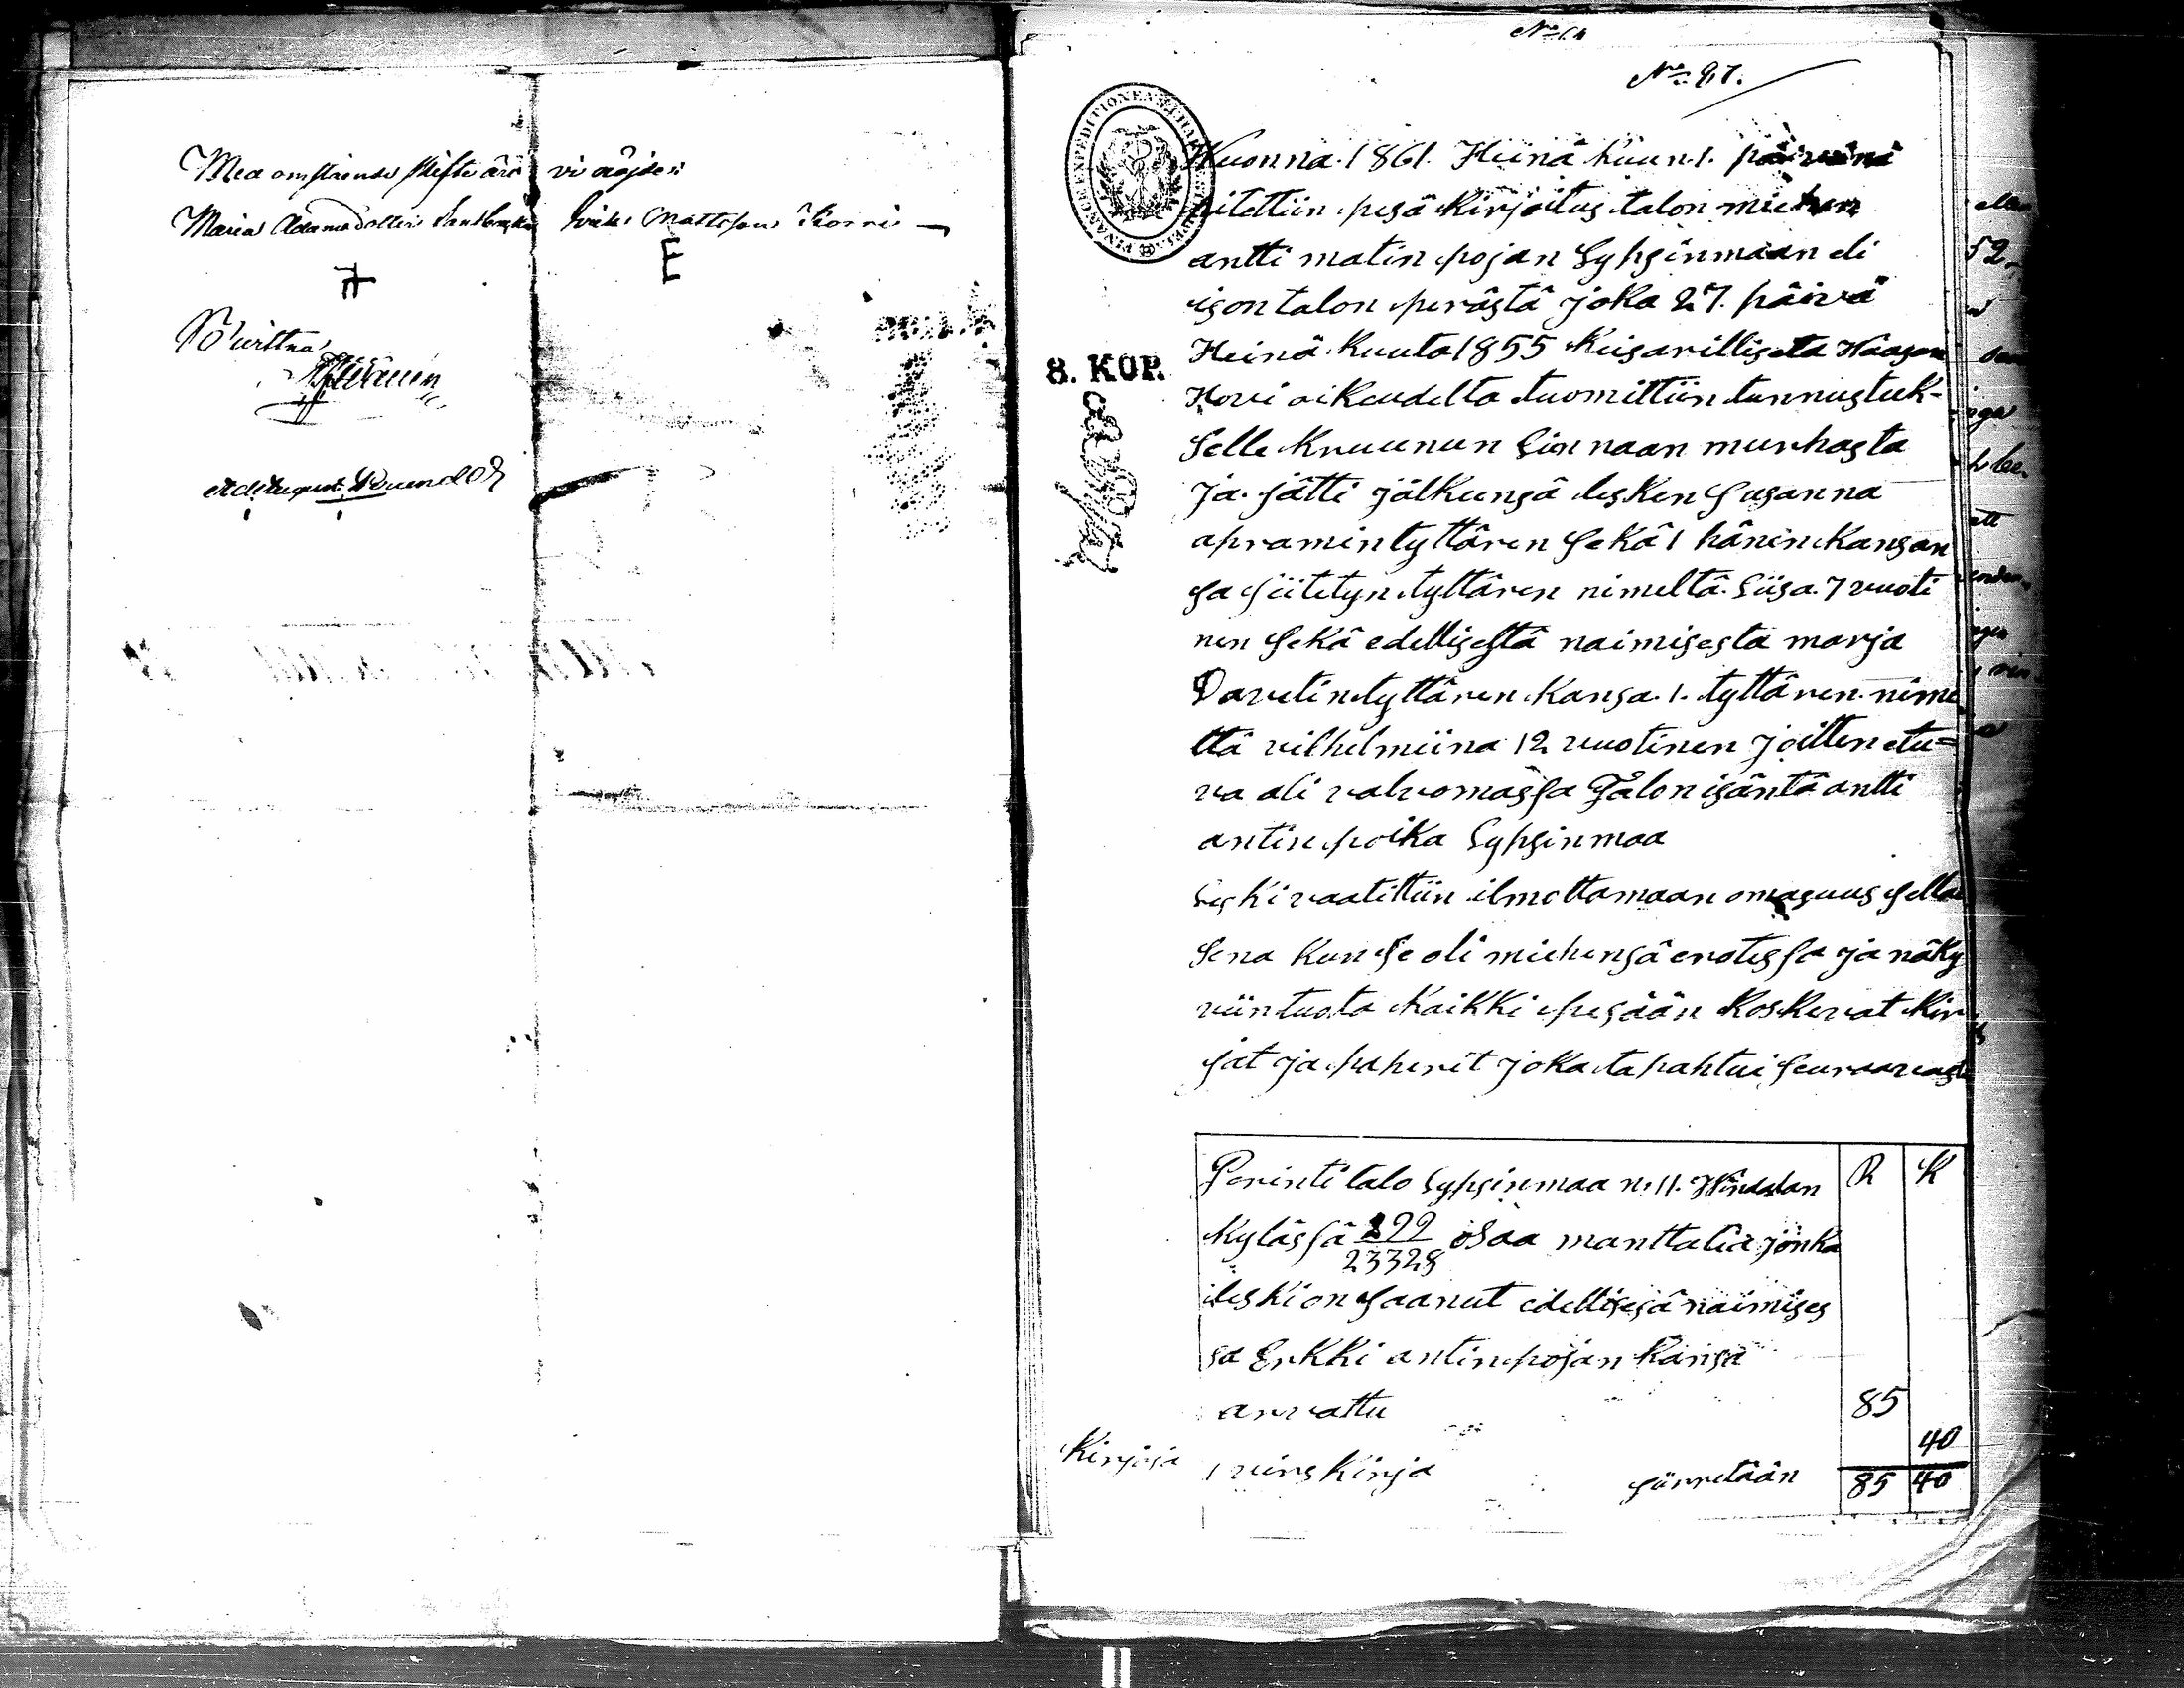 Med omstående skifte äro vi nöjde:
Maria Adamsdotter Sandbacka Erik Mattsson Korri
E
Bevittna
N:o 87.
8. KOP.
Wuonna 1861. Heinä kuun 1. päivänä
pitettiin pesä kirjoitus talon miehen
antti matin pojan Lypsinmaan eli
ison talon perästä joka 27. päivä
Heinä kuuta 1855 keisarillisesta Waasan
Howi oikeudelta tuomittiin tunnustuk-
selle kruunun Linnaan murhasta
ja jätti jälkeensä lesken Susanna
apramintyttären sekä 1 hänen kansan
sa siitetyn tyttären nimeltä Liisa 7 vuoti
nen sekä edellisestä naimisesta marja
Davetintyttären kansa 1. tyttären nime
ltä vilhelmiina 12 vuotinen joitten etu=
va oli valvomassa Talon isäntä antti
antin poika Lypsinmaa
Leski vaatittiin ilmottamaan omasuus sella
sena kun se oli miehensä erotessa ja näky
viin tuota kaikki pesään koskevat kir
jat ja paperit joka tapahtui seuraavast
R K
Perinti talo Lypsinmaa n: 11. Hirvlan
kylässä 299/23328 osaa manttalia jonka
leski on saanut edellisesä naimises
sa Erkki antinpojan kansa
arvattu 85
Kirjoja 1 virs kirja 40
siirretään 85 40